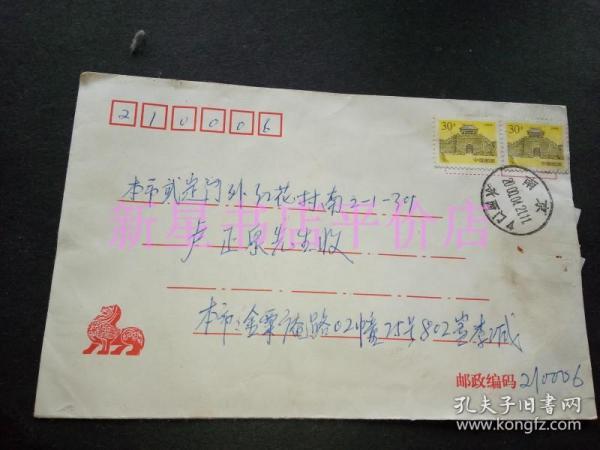 210006
30分
30分
中国邮政
中国邮政
南京
本市武定门外红花村南2-1-301
卢正泉先生收
新星书店平价店
本市:金粟庵路02幢75号802室李诚
邮政编码210006
孔夫子旧书网
www.kongfz.com